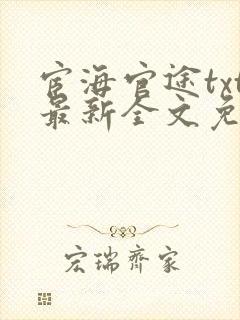 宦海官途txt
最新全文免
宏瑞齐家